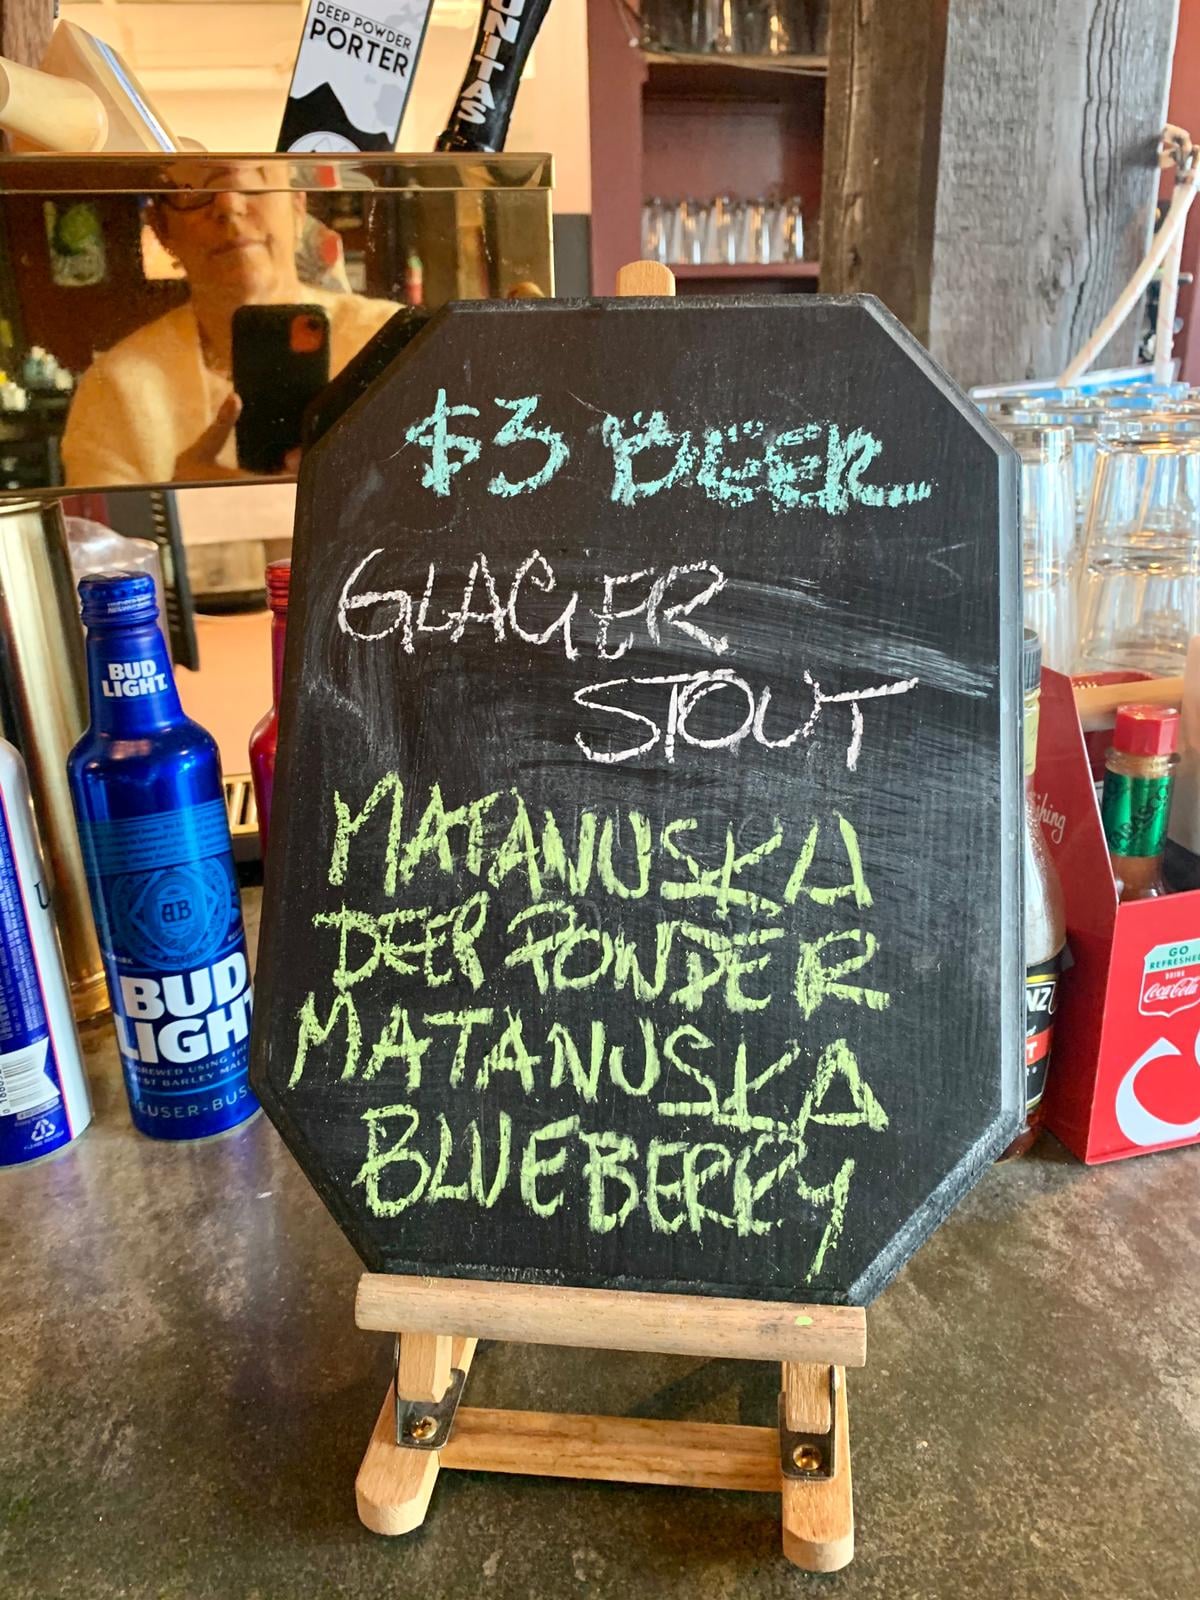 DEEP POWDER
PORTER
UNITAS
$3 BEER
GLACIER
STOUT
MATANUSKA
DEEP POWDER
MATANUSKA
BLUEBERRY
BUD
LIGHT
AB
BUD
LIGH
BREWED USING THE
EST BARLEY MALT
EUSER-BUS
PLEASE RECYCLE
NZ
GO
REFRESHED
DRINK
Coca-Cola